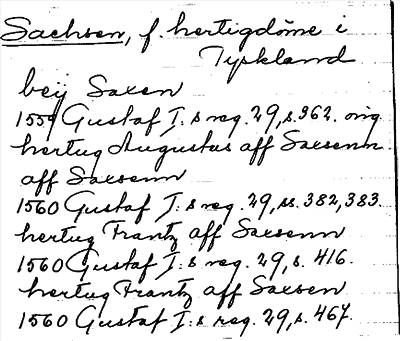 Sachsen, f. hertigdöme i
Tyskland
beij Saxen
1559 Gustaf I:s reg. 29, s. 362. orig.
hertug Augustus aff Saxsenn
aff Saxsenn
1560 Gustaf I:s reg. 29, ss. 382, 383.
hertug Frantz aff Saxsenn
1560 Gustaf I:s reg. 29, s. 416.
hertug Frantz aff Saxsen
1560 Gustaf I:s reg. 29, s. 467.